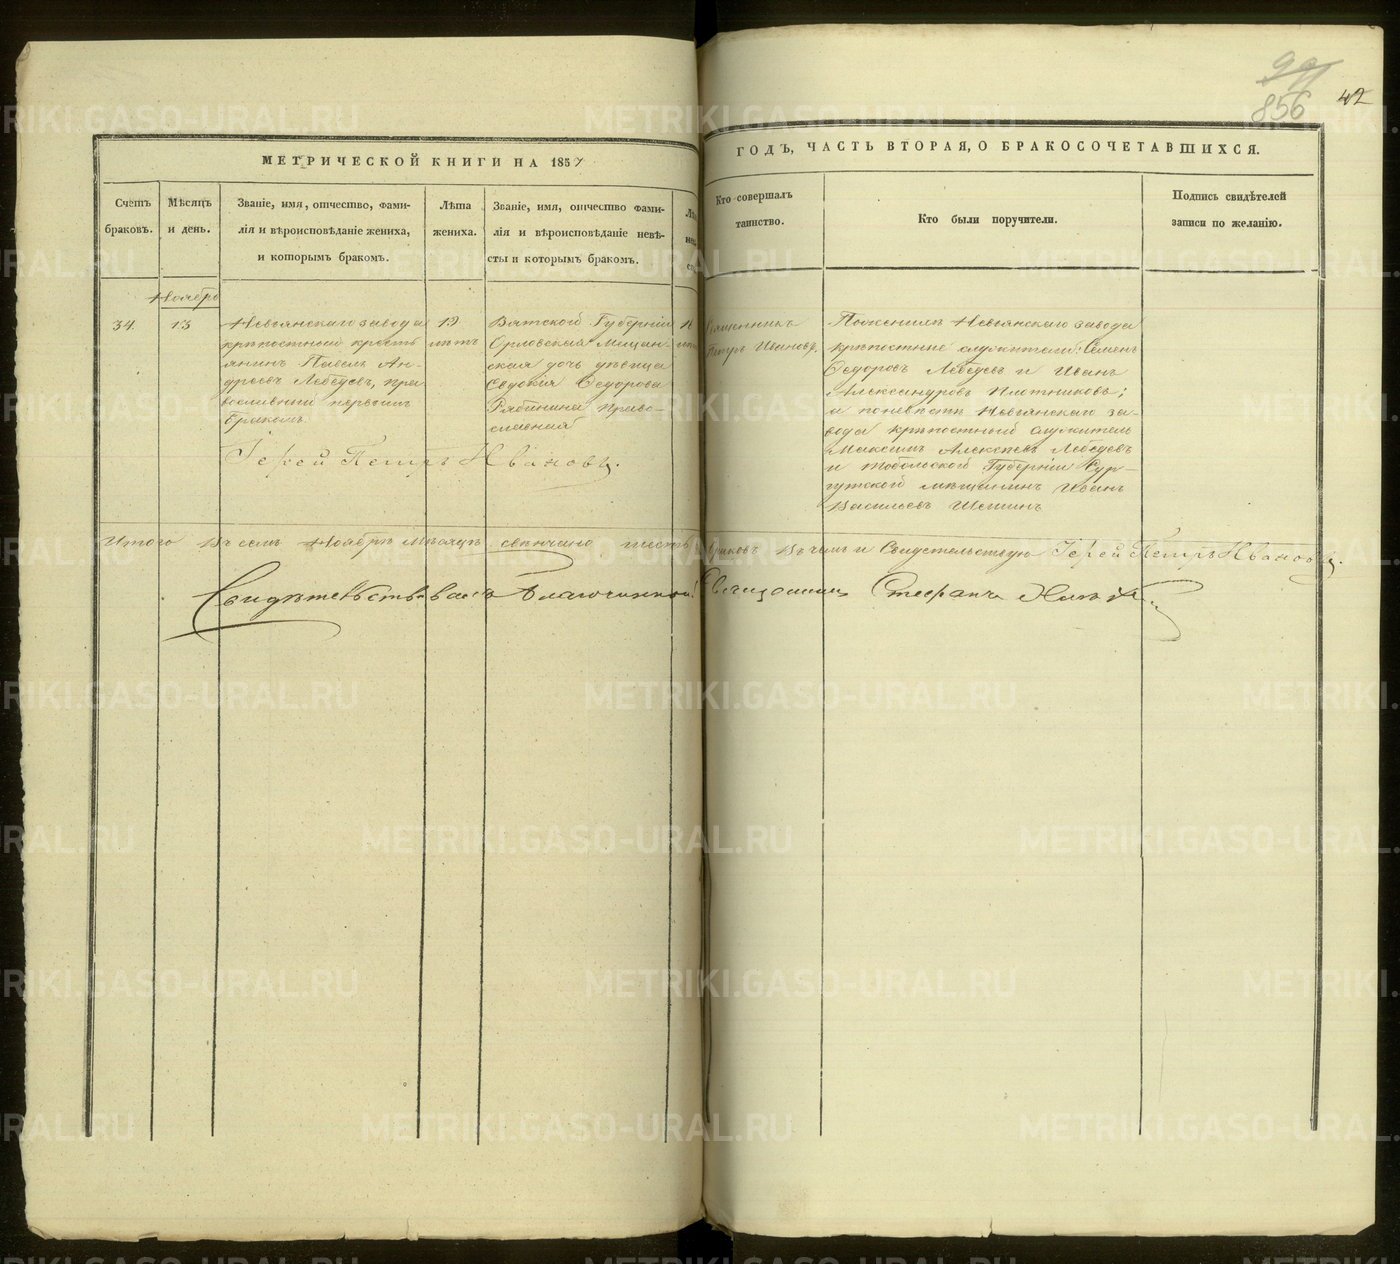 99
856
42
МЕТРИЧЕСКОЙ КНИГИ НА 1857
ГОДЪ, ЧАСТЬ ВТОРАЯ, О БРАКОСОЧЕТАВШИХСЯ.
Счетъ
браковъ.
Мѣсяцъ
и день.
Званіе, имя, отчество, фами-
лія и вѣроисповѣданіе жениха,
и которымъ бракомъ.
Лѣта
жениха.
Званіе, имя, отчество фами-
лія и вѣроисповѣданіе невѣ-
сты и которымъ бракомъ.
Кто совершалъ
таинство.
Кто были поручители.
Подпись свидѣтелей
записи по желанію.
Ноября
34.
13
Невьянскаго завода
крѣпостный кресть
янинъ Павелъ Ан-
дреевъ Лебедевъ, пра
вославный первымъ
бракомъ.
19
лѣтъ
Вятской Губерніи
Орловская Мѣщан-
ская дочь дѣвица
Евдокия Федорова
Рябинина право-
славная
Священникъ
Петръ Ивановъ,
По женихѣ Невьянскаго завода
крѣпостные служители: Семенъ
Федоровъ Лебедевъ и Иванъ
Александровъ Плотниковъ;
а по невѣстѣ Невьянскаго за-
вода крѣпостный служитель
Максимъ Алексѣевъ Лебедевъ
и Тобольской Губерніи Сур-
гутской мѣщанинъ Иванъ
Васильевъ Шешинъ
Іерей Петръ Ивановъ.
Итого Въ семъ Ноябрѣ Мѣсяцѣ свѣнчано шесть браковъ Въ чемъ и Свидетельствую Іерей Петръ Ивановъ.
Свидѣтельствовалъ Благочинный Священникъ Стефанъ
METRIKI.GASO-URAL.RU